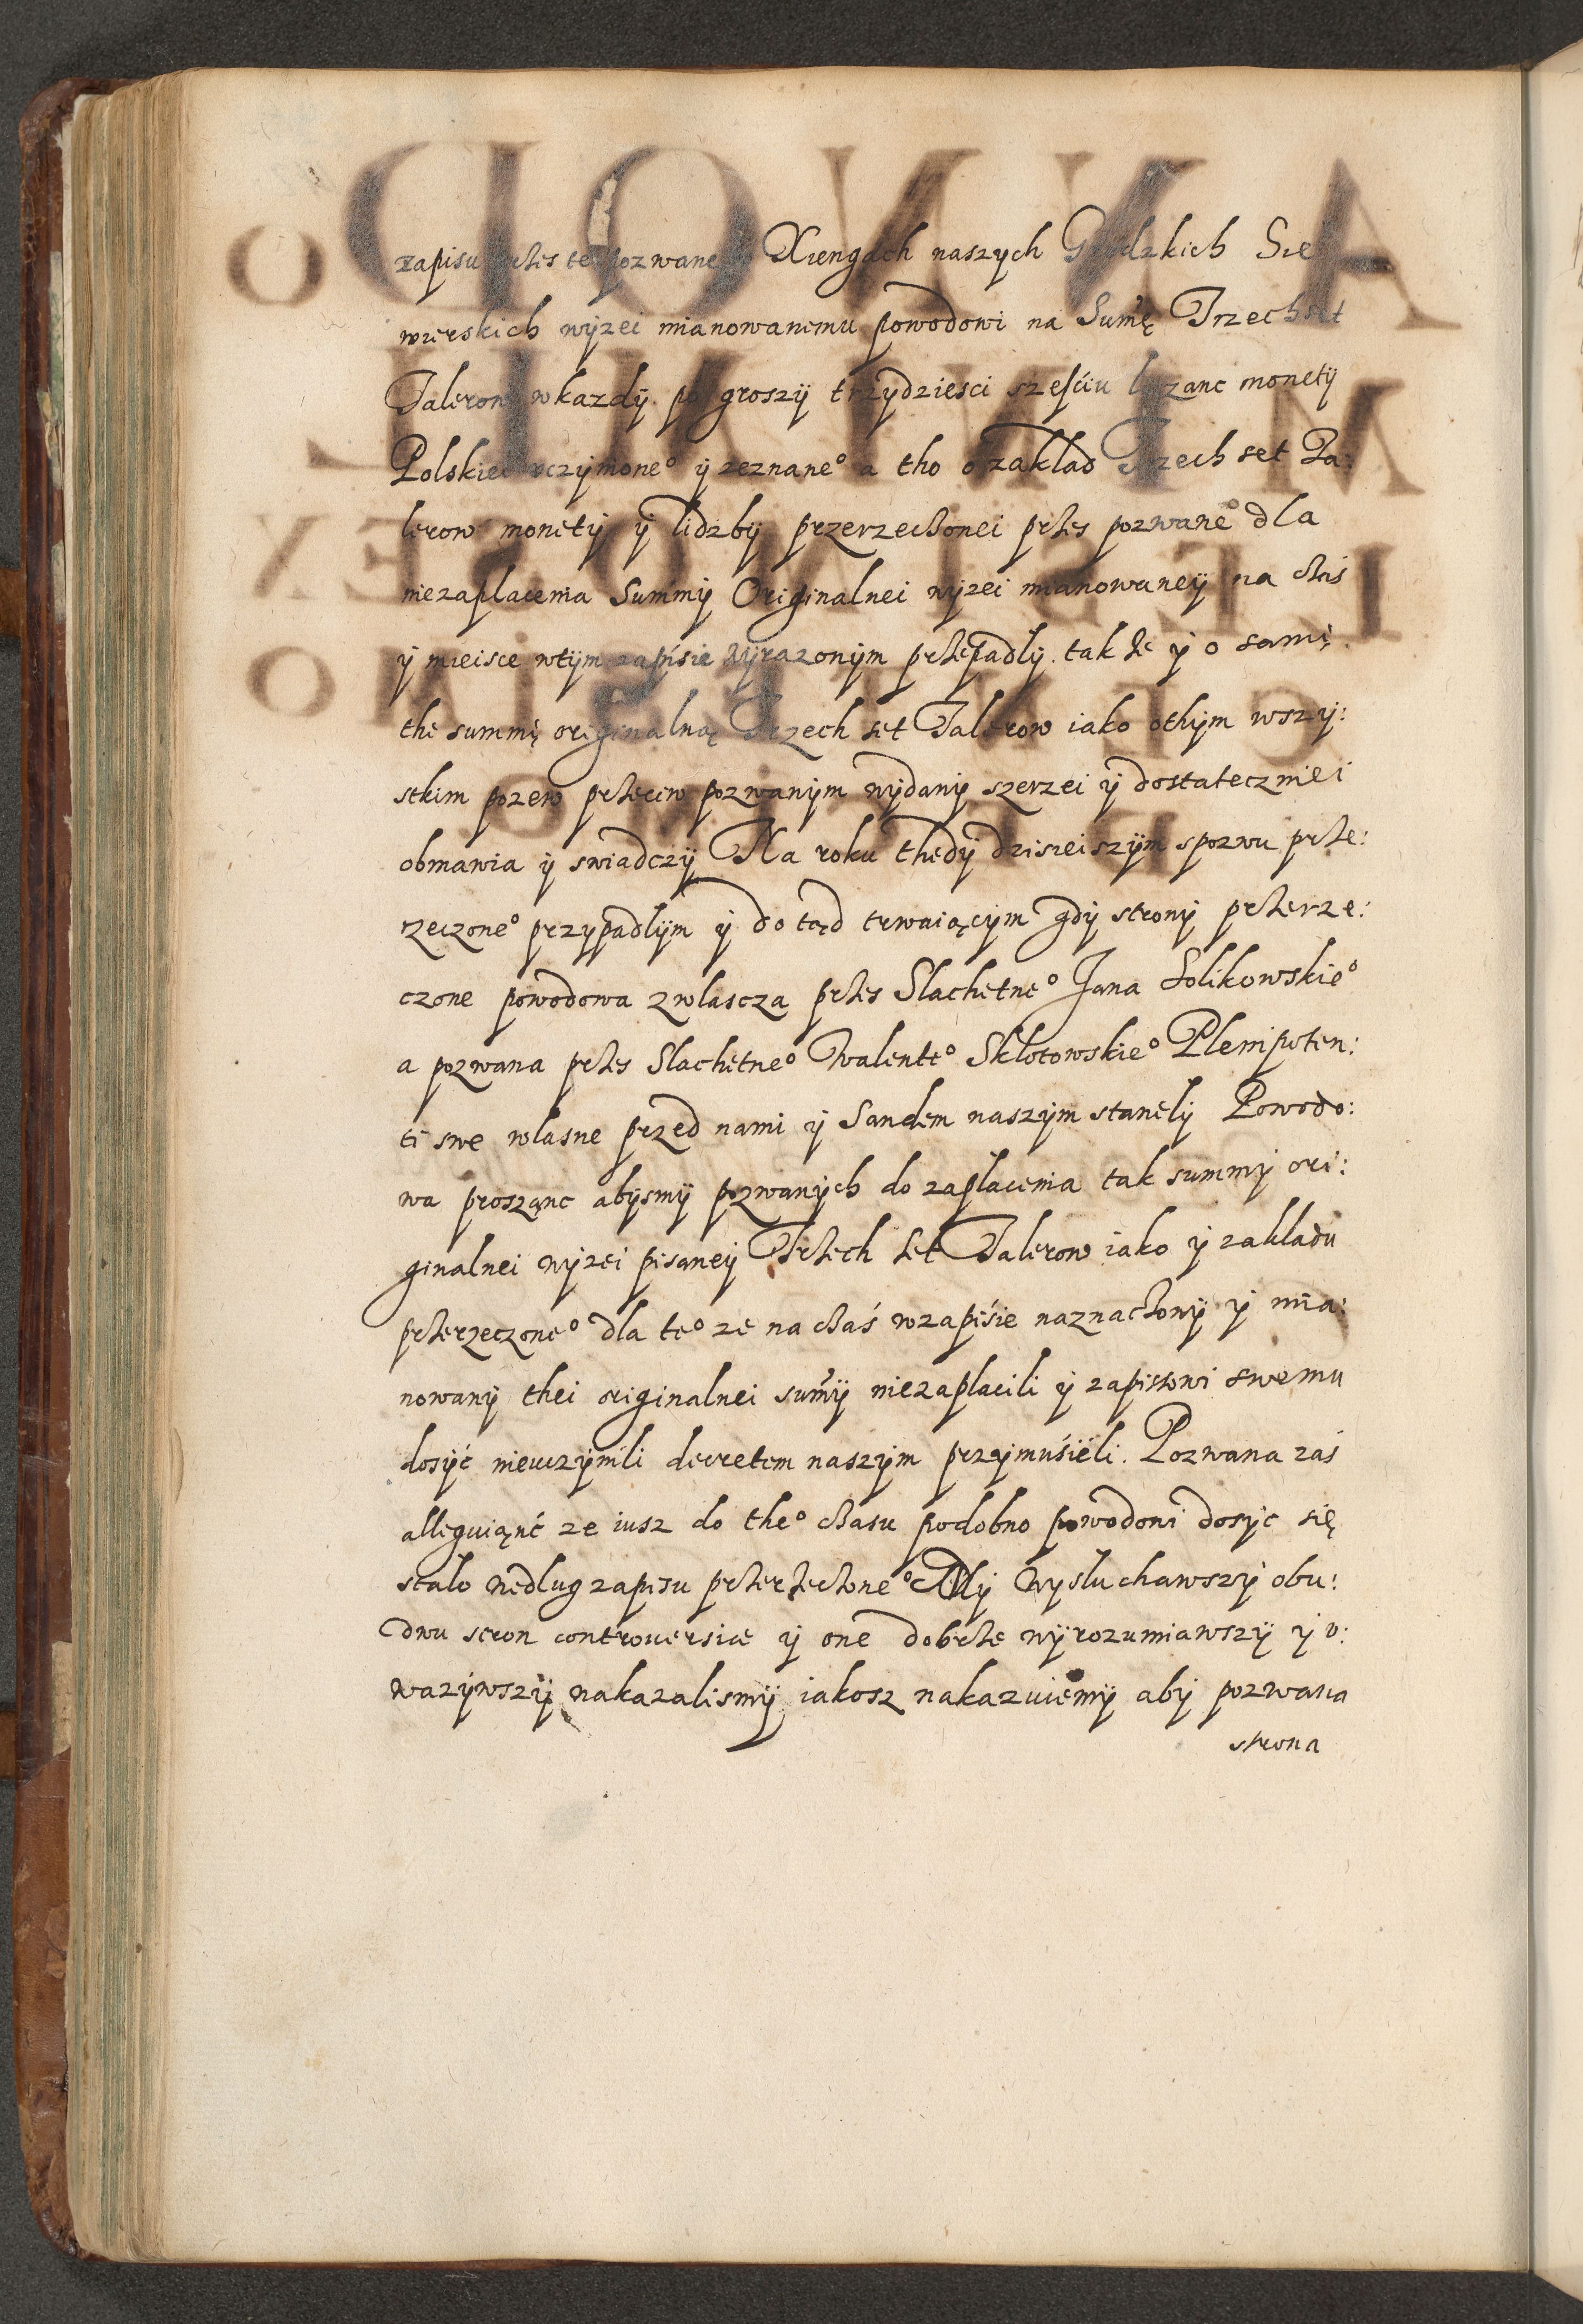 zapisu przes te pozwane w Xiengach naszych Grodzkich Sie
wierskich wyzei mianowanemu powodowi na Sumę Trzech set
Talerow w kazdy po groszy trzydziesci szesciu liczanc monety
Polskiei uczynioneº y zeznaneº a tho o zaklad Trzech set Ta:
lerow monety y lidzby przerzeczonei przes pozwane dla
niezaplacenia Summy Originalnei wyzei mianowaney na czas
y mieisce w tym zapisie wyrazonym przepadly. takze y o samę
the summę originalną Trzech set Talerow iako o thym wszy:
stkim pozew przeciw pozwanym wydany szerzei y dostateczniei
obmawia y swiadczy Na roku thedy dzisieiszym s pozwu prze:
rzeczoneº przypadlym y do tąd trwaiącym gdy strony przerze:
czone powodowa zwlascza przes Slachetneº Jana Solikowskieº
a pozwana przes Slachetneº Walenteº Sklotowskieº Plenipoten:
ti swe wlasne przed nami y Sandem naszym stanely Powodo:
wa prosząnc abysmy pozwanych do zaplacenia tak summy ori:
ginalnei wyzei pisaney Trzech set Talerow iako y zakladu
przerzeczoneº dla teº ze na czas w zapisie naznaczony y mia:
nowany thei originalnei sumy niezaplacili y zapisowi swemu
dosyć nieuczynili decretem naszym przymusieli. Pozwana zaś
alleguiąnć ze iusz do theº czasu podobno powodowi dosyc się
stalo wedlug zapisu przerzeczoneº A My wysluchawszy obu:
dwu stron controuersie y one dobrze wyrozumiawszy y u:
wazywszy nakazalismy iakosz nakazuiemy aby pozwana
strona